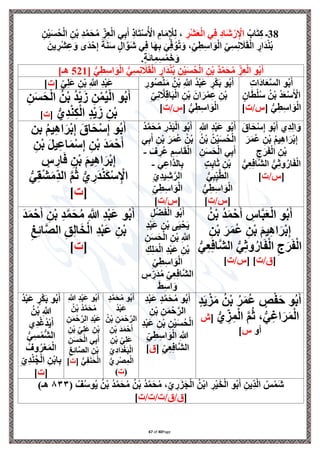 38- كِتَابُ الإِرْشَادِ فِي الْعَشْرِ ، لِلإِمَامِ الأُسْتَاذِ أَبِي الْعِزِّ مُحَمَّدِ بْنِ الْحُسَيْنِ
بْنِ بُنْدَارِ الْقَلاَنِسِيِّ الْوَاسِطِيِّ، وَتُوُفِّيَ بِهَا فِي شَوَّالٍ سَنَةَ إِحْدَى وَعِشْرِينَ
وَخَمْسِمِائَةٍ.
أَبُو الْعِزِّ مُحَمَّدُ بْنُ الْحُسَيْنِ بْنِ بُنْدَارٍ الْقَلاَنِسِيُّ الْوَاسِطِيُّ [521 هـ]
أَبُو السَّعَادَاتِ الأَسْعَدُ بْنُ سُلْطَانٍ الْوَاسِطِيُّ [س/ت]
أَبُو بَكْرٍ عَبْدُ اللهِ بْنُ مَنْصُورِ بْنِ عِمْرَانَ بْنِ الْبَاقِلاَّنِيِّ الْوَاسِطِيُّ [س/ت]
عَبْدُ اللهِ بْنُ عَلِيٍّ [ت]
أَبُو الْيُمْنِ زَيْدُ بْنُ الْحَسَنِ بْنِ زَيْدٍ الْكِنْدِيُّ [ت]
وَالِدِي أَبُو إِسْحَاقَ إِبْرَاهِيمُ بْنُ عُمَرَ بْنِ الْفَرَجِ الْفَارُوثِيُّ الشَّافِعِيُّ [س/ت]
أَبُو عَبْدِ اللهِ مُحَمَّدُ بْنُ الْحُسَيْنِ بْنِ أَبِي الْحَسَنِ بْنِ ثَابِتٍ الطِّيبِيُّ الْوَاسِطِيُّ [س/ت]
أَبُو الْبَدْرِ مُحَمَّدُ بْنُ عُمَرَ بْنِ أَبِي الْقَاسِمِ - عُرِفَ بِالدَّاعِي - الرَّشِيدِيُّ الْوَاسِطِيُّ [س/ت]
أَبُو إِسْحَاقَ إِبْرَاهِيمُ بنُ أَحْمَدَ بْنِ إِسْمَاعِيلَ بْنِ إِبْرَاهِيمَ بْنِ فَارِسٍ الإِسْكَنْدَرِيُّ ثُمَّ الدِّمَشْقِيُّ [ت]
أَبُو الْعَبَّاسِ أَحْمَدُ بْنُ إِبْرَاهِيمَ بْنِ عُمَرَ بْنِ الْفَرَجِ الْفَارُوثِيُّ الشَّافِعِيُّ [ق/ت] [س/ت]
أَبُو الْفَضْلِ يَحْيَى بْنِ عَبْدِ اللهِ بْنِ الْحَسَنِ بْنِ عَبْدِ الْمَلِكِ الْوَاسِطِيِّ الشَّافِعِيِّ مُدَرِّسِ وَاسِطَ
أَبُو عَبْدِ اللهِ مُحَمَّدُ بْنِ أَحْمَدَ بْنِ عَبْدِ الْخَالِقِ الصَّائِغُ [ت]
أَبُو حَفْصٍ عُمَرُ بْنُ مَزْيَدٍ الْمَرَاغِيُّ، ثُمَّ الْمِزِّيُّ [ش أو س]
أَبُو مُحَمَّدٍ عَبْدِ الرَّحْمَنِ بْنِ الْحُسَيْنِ بْنِ عَبْدِ اللهِ الْوَاسِطِيِّ الشَّافِعِيِّ [ق]
أَبُو مُحَمَّدٍ عَبْدُ الرَّحْمَنِ بْنِ أَحْمَدَ بْنِ عَلِيٍّ الْبَغْدَادِيِّ الْمِصْرِيِّ (ت)
أَبُو عَبْدِ اللهِ مُحَمَّدُ بْنُ عَبْدِ الرَّحْمَنِ بْنِ عَلِيِّ بْنِ أَبِي الْحَسَنِ بْنِ الصَّائِغِ الْحَنَفِيُّ [ت]
أَبُو بَكْرٍ عَبْدُ اللهِ بْنُ أَيْدُغْدِي الشَّمْسِيُّ الْمَعْرُوفُ بِابْنِ الْجُنْدِيِّ [ت]
شَمْسُ الدِّينِ أَبُو الْخَيْرِ ابْنُ الْجَزَرِيِّ، مُحَمَّدُ بْنُ مُحَمَّدِ بْنِ يُوسُفَ (٨٣٣ هـ) [ق/ق/ت/ت/ت]
47 of 60Page